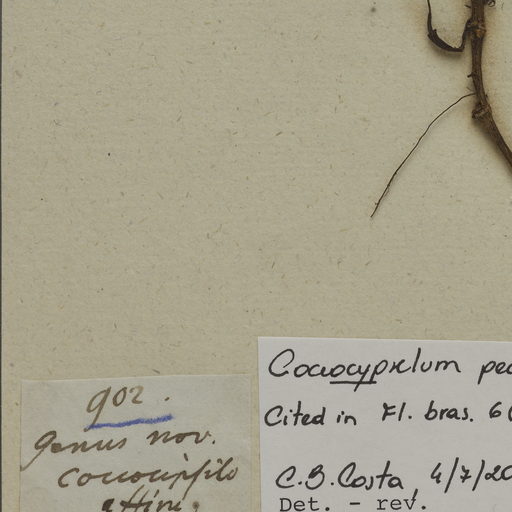 902.
Genus nov.
Coccocipsilo
affini.
Coccocypselum pe
Cited in Fl. bras. 6(
C.B. Costa, 4/7/20
Det. - rev.